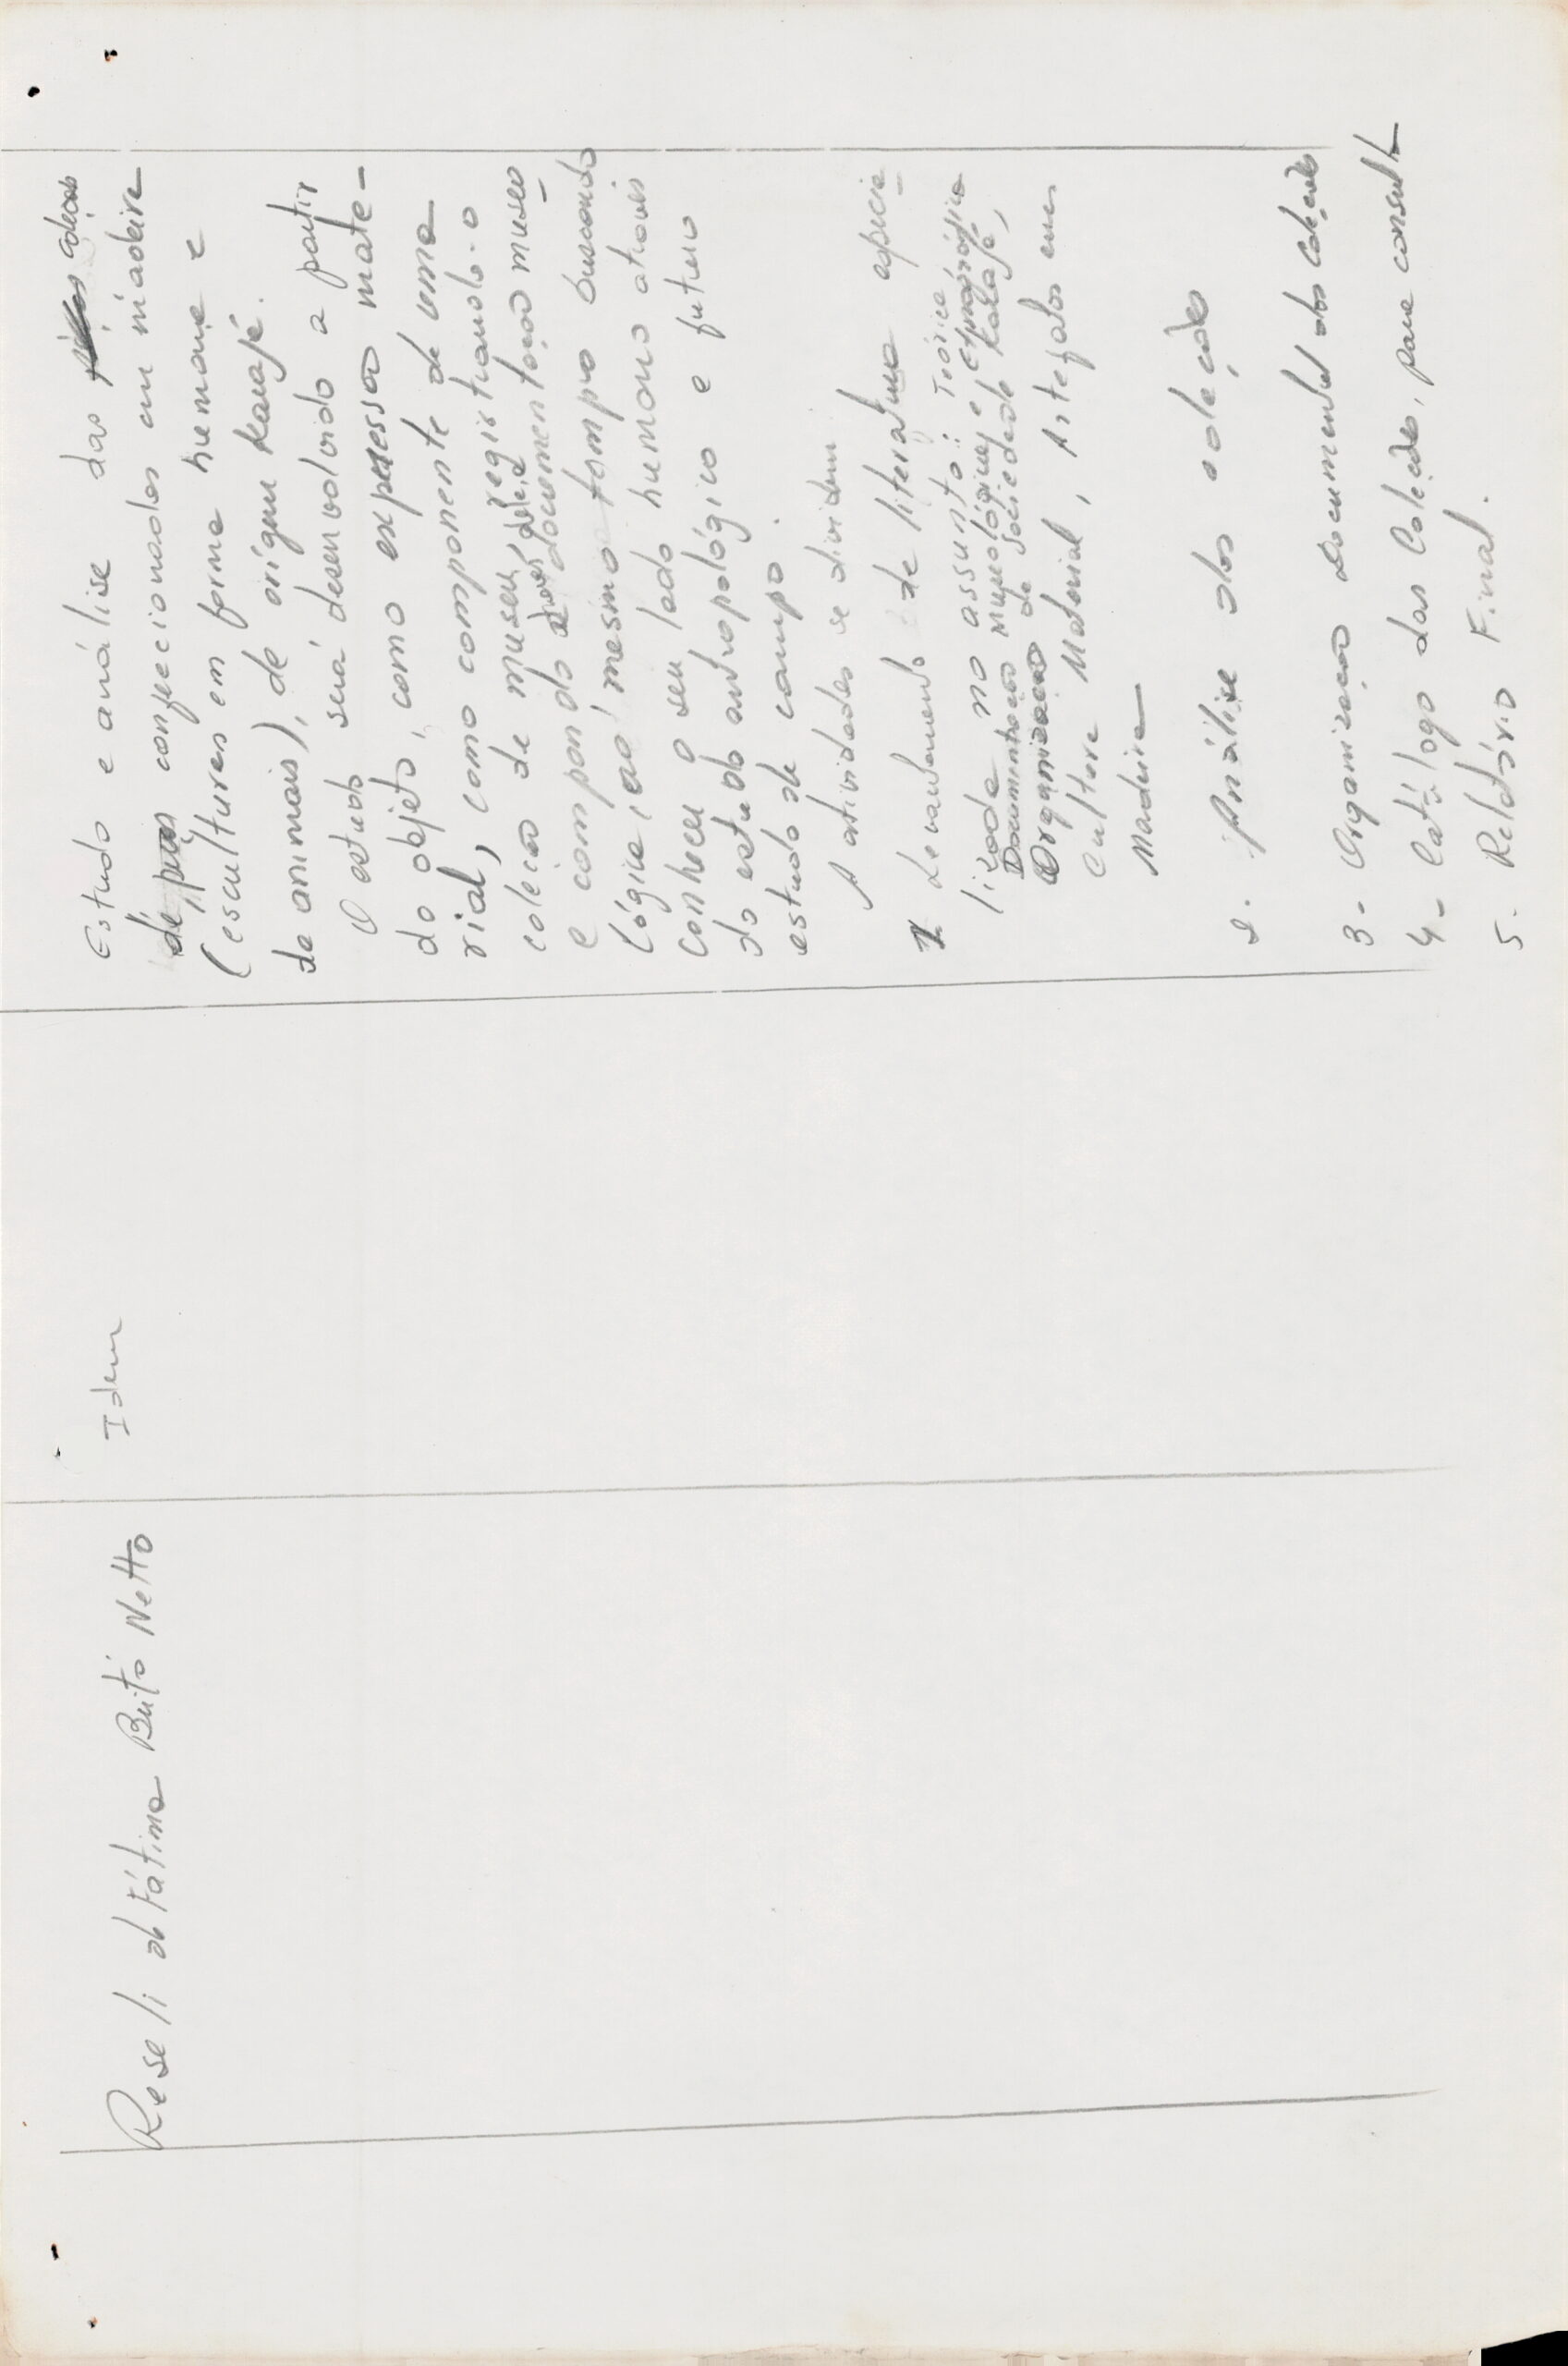 Roseli de Fátima Brito Netto
Idem
Estudo e análise das coleções
de peças confeccionadas em madeira
(esculturas em forma humana e
de animais), de orígem Karajé.
O estudo será desenvolvido a partir
do objeto, como expressão mate-
rial, como componente de uma
coleção de museu, registrando-o
e compondo documentação museo-
lógica, ao mesmo tempo buscando
conhecer o seu lado humano através
do estudo antropológico e futuro
estudo de campo.
A atividades se dividem
1 Levantamento de literatura especia-
lizada no assunto: Teórica
Documentação Museológica e Etnológica
Organização da Sociedade Karajé,
Cultura Material, Artefatos em
Madeira
2. Análise das coleções
3- Organização Documental das Coleções
4- Catálogo das Coleções, para consulta
5. Relatório Final.